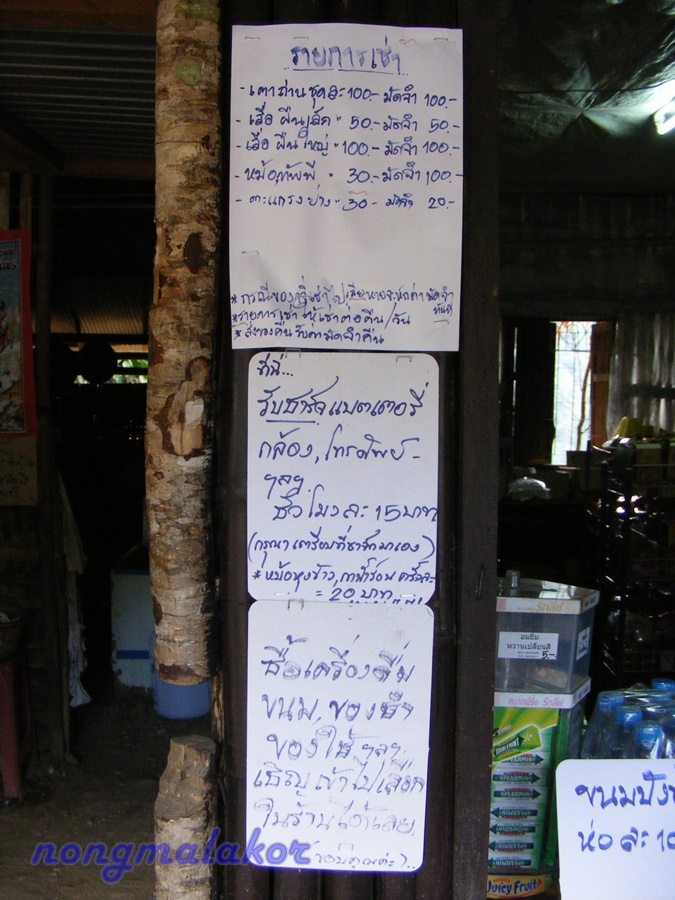 รายการเช่า
- เตาถ่านชุดละ 100.- มัดจำ 100.-
- เสื่อ ผืนเล็ก " 50.- มัดจำ 50.-
- เสื่อ ผืนใหญ่ " 100.- มัดจำ 100.-
- หม้อ,ทัพพี " 30.- มัดจำ 100.-
- ตะแกรงย่าง " 30.- มัดจำ 20.-
* กรณีของที่เช่าไป
มัดจำ
ทันที
* รายการเช่า ให้เช่าต่อคืน/วัน
* ส่งของคืน รับค่ามัดจำคืน
ที่นี่...
รับชาร์จแบตเตอรี่
กล้อง, โทรศัพย์ -
ฯลฯ
ชั่วโมงละ 15 บาท
(กรุณาเตรียมที่ชาร์จมาเอง)
* หม้อหุงข้าว, กาน้ำร้อน ครั้งละ
= 20 บาท
ซื้อเครื่องดื่ม
ขนม, ของชำ
ของใช้ ฯลฯ
เชิญเข้าไปเลือก
ในร้านได้เลย
(ขอบคุณค่ะ)..
อมยิ้ม
หวานเปลี่ยนสี
5.-
DOUBLEMINT
SPEARMINT
SPEARMINT
SPEARMINT
SPEARMINT
Juicy Fruit
ขนมปัง
ห่อละ 10
nongmalakor